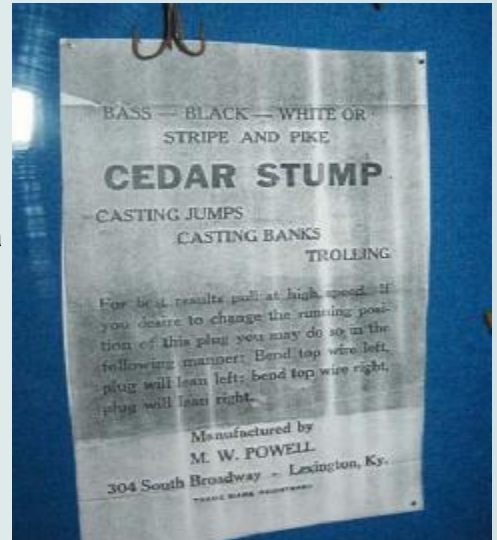 BASS — BLACK — WHITE OR
STRIPE AND PIKE
CEDAR STUMP
CASTING JUMPS
CASTING BANKS
TROLLING
For best results pull at high speed. If
you desire to change the running posi-
tion of this plug you may do so in the
following manner: Bend top wire left,
plug will lean left; bend top wire right,
plug will lean right.
Manufactured by
M. W. POWELL
304 South Broadway - Lexington, Ky.
TRADE MARK REGISTERED